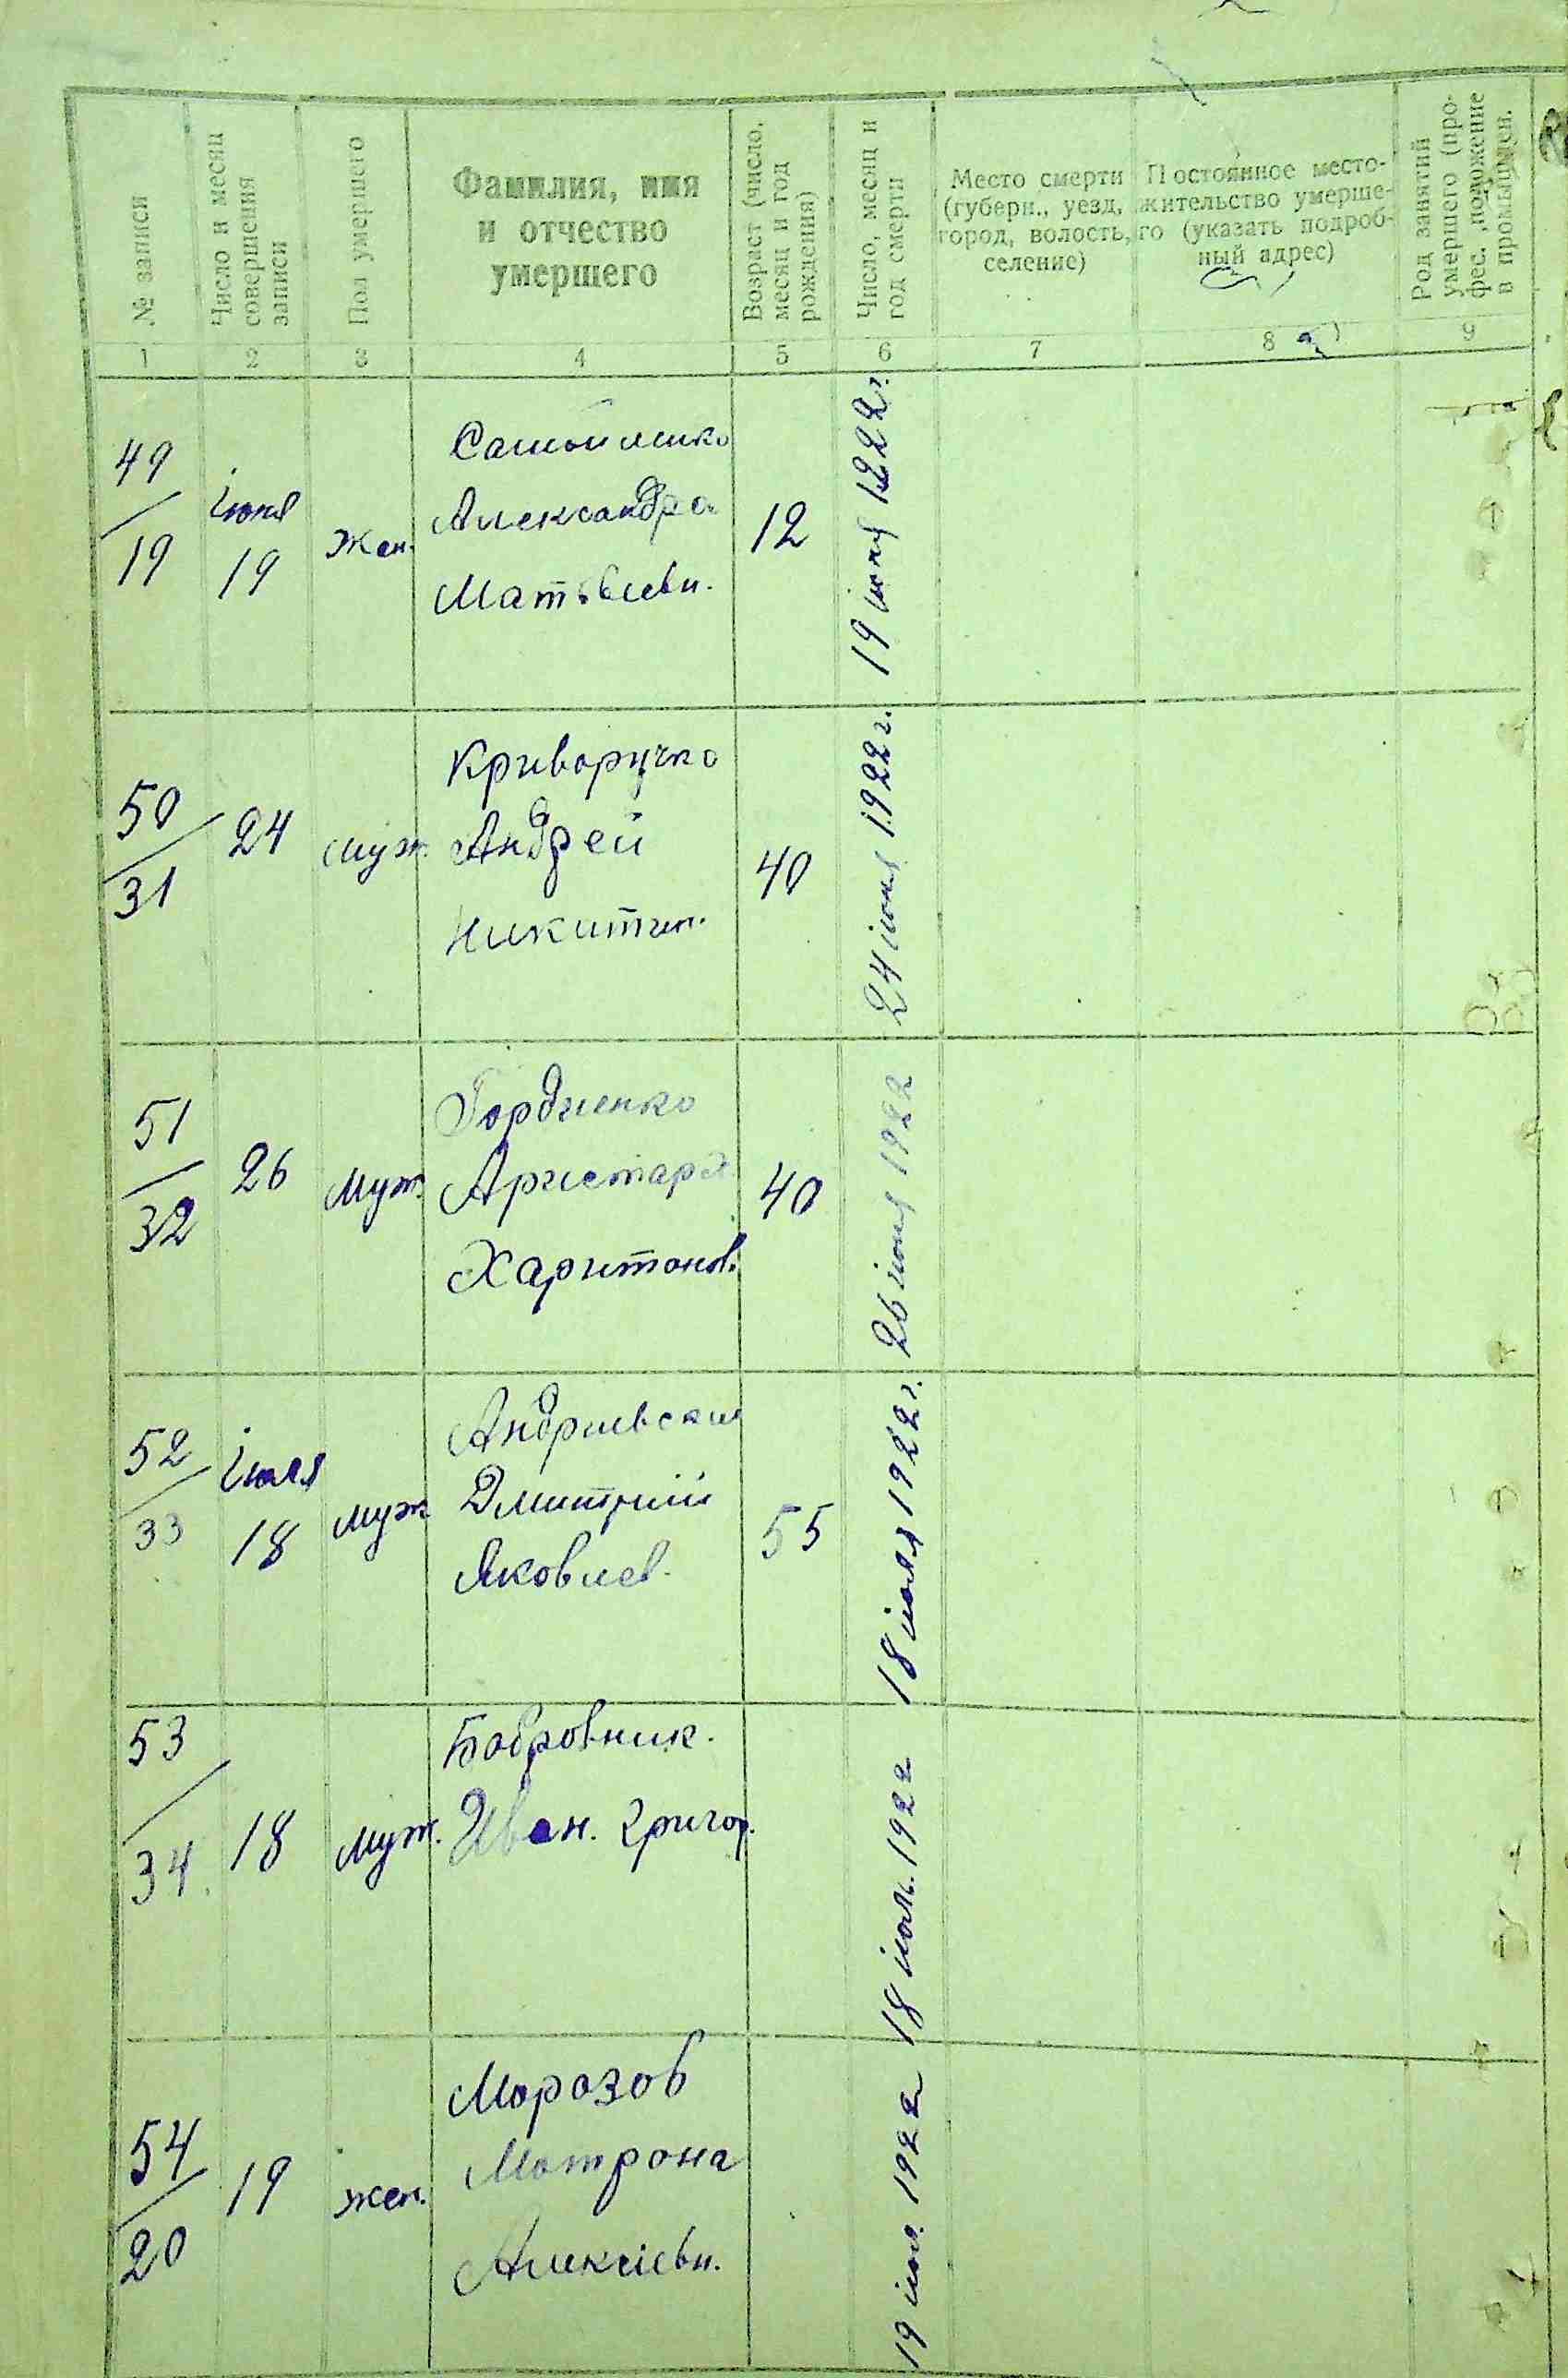 № записи
Число и месяц
совершения
записи
Пол умершего
Фамилия, имя
и отчество
умершего
Возраст (число,
месяц и год
рождения)
Число, месяц и
год смерти
Место смерти
(губерн., уезд,
город, волость,
селение)
Постоянное место-
жительство умерше-
го (указать подроб-
ный адрес)
Род занятий
умершего (про-
фес., положение
в промышлен.
1 2 3 4 5 6 7 8 9
49
19
іюня
19
жен.
Самойленко
Александра
Матвѣевн.
12
19 іюня 1922 г.
50
31
24
муж.
Криворучко
Андрей
Никитин.
40
24 іюня 1922 г.
51
32
26
муж.
Гордиенко
Аристарх
Харитонов.
40
26 іюня 1922
52
33
іюля
18
муж
Андриевский
Дмитрий
Яковлев.
55
18 іюля 1922 г.
53
34
18
муж.
Бобровник.
Иван. Григор.
18 іюл. 1922
54
20
19
жен.
Морозов
Мотрона
Алексіевн.
19 іюл. 1922